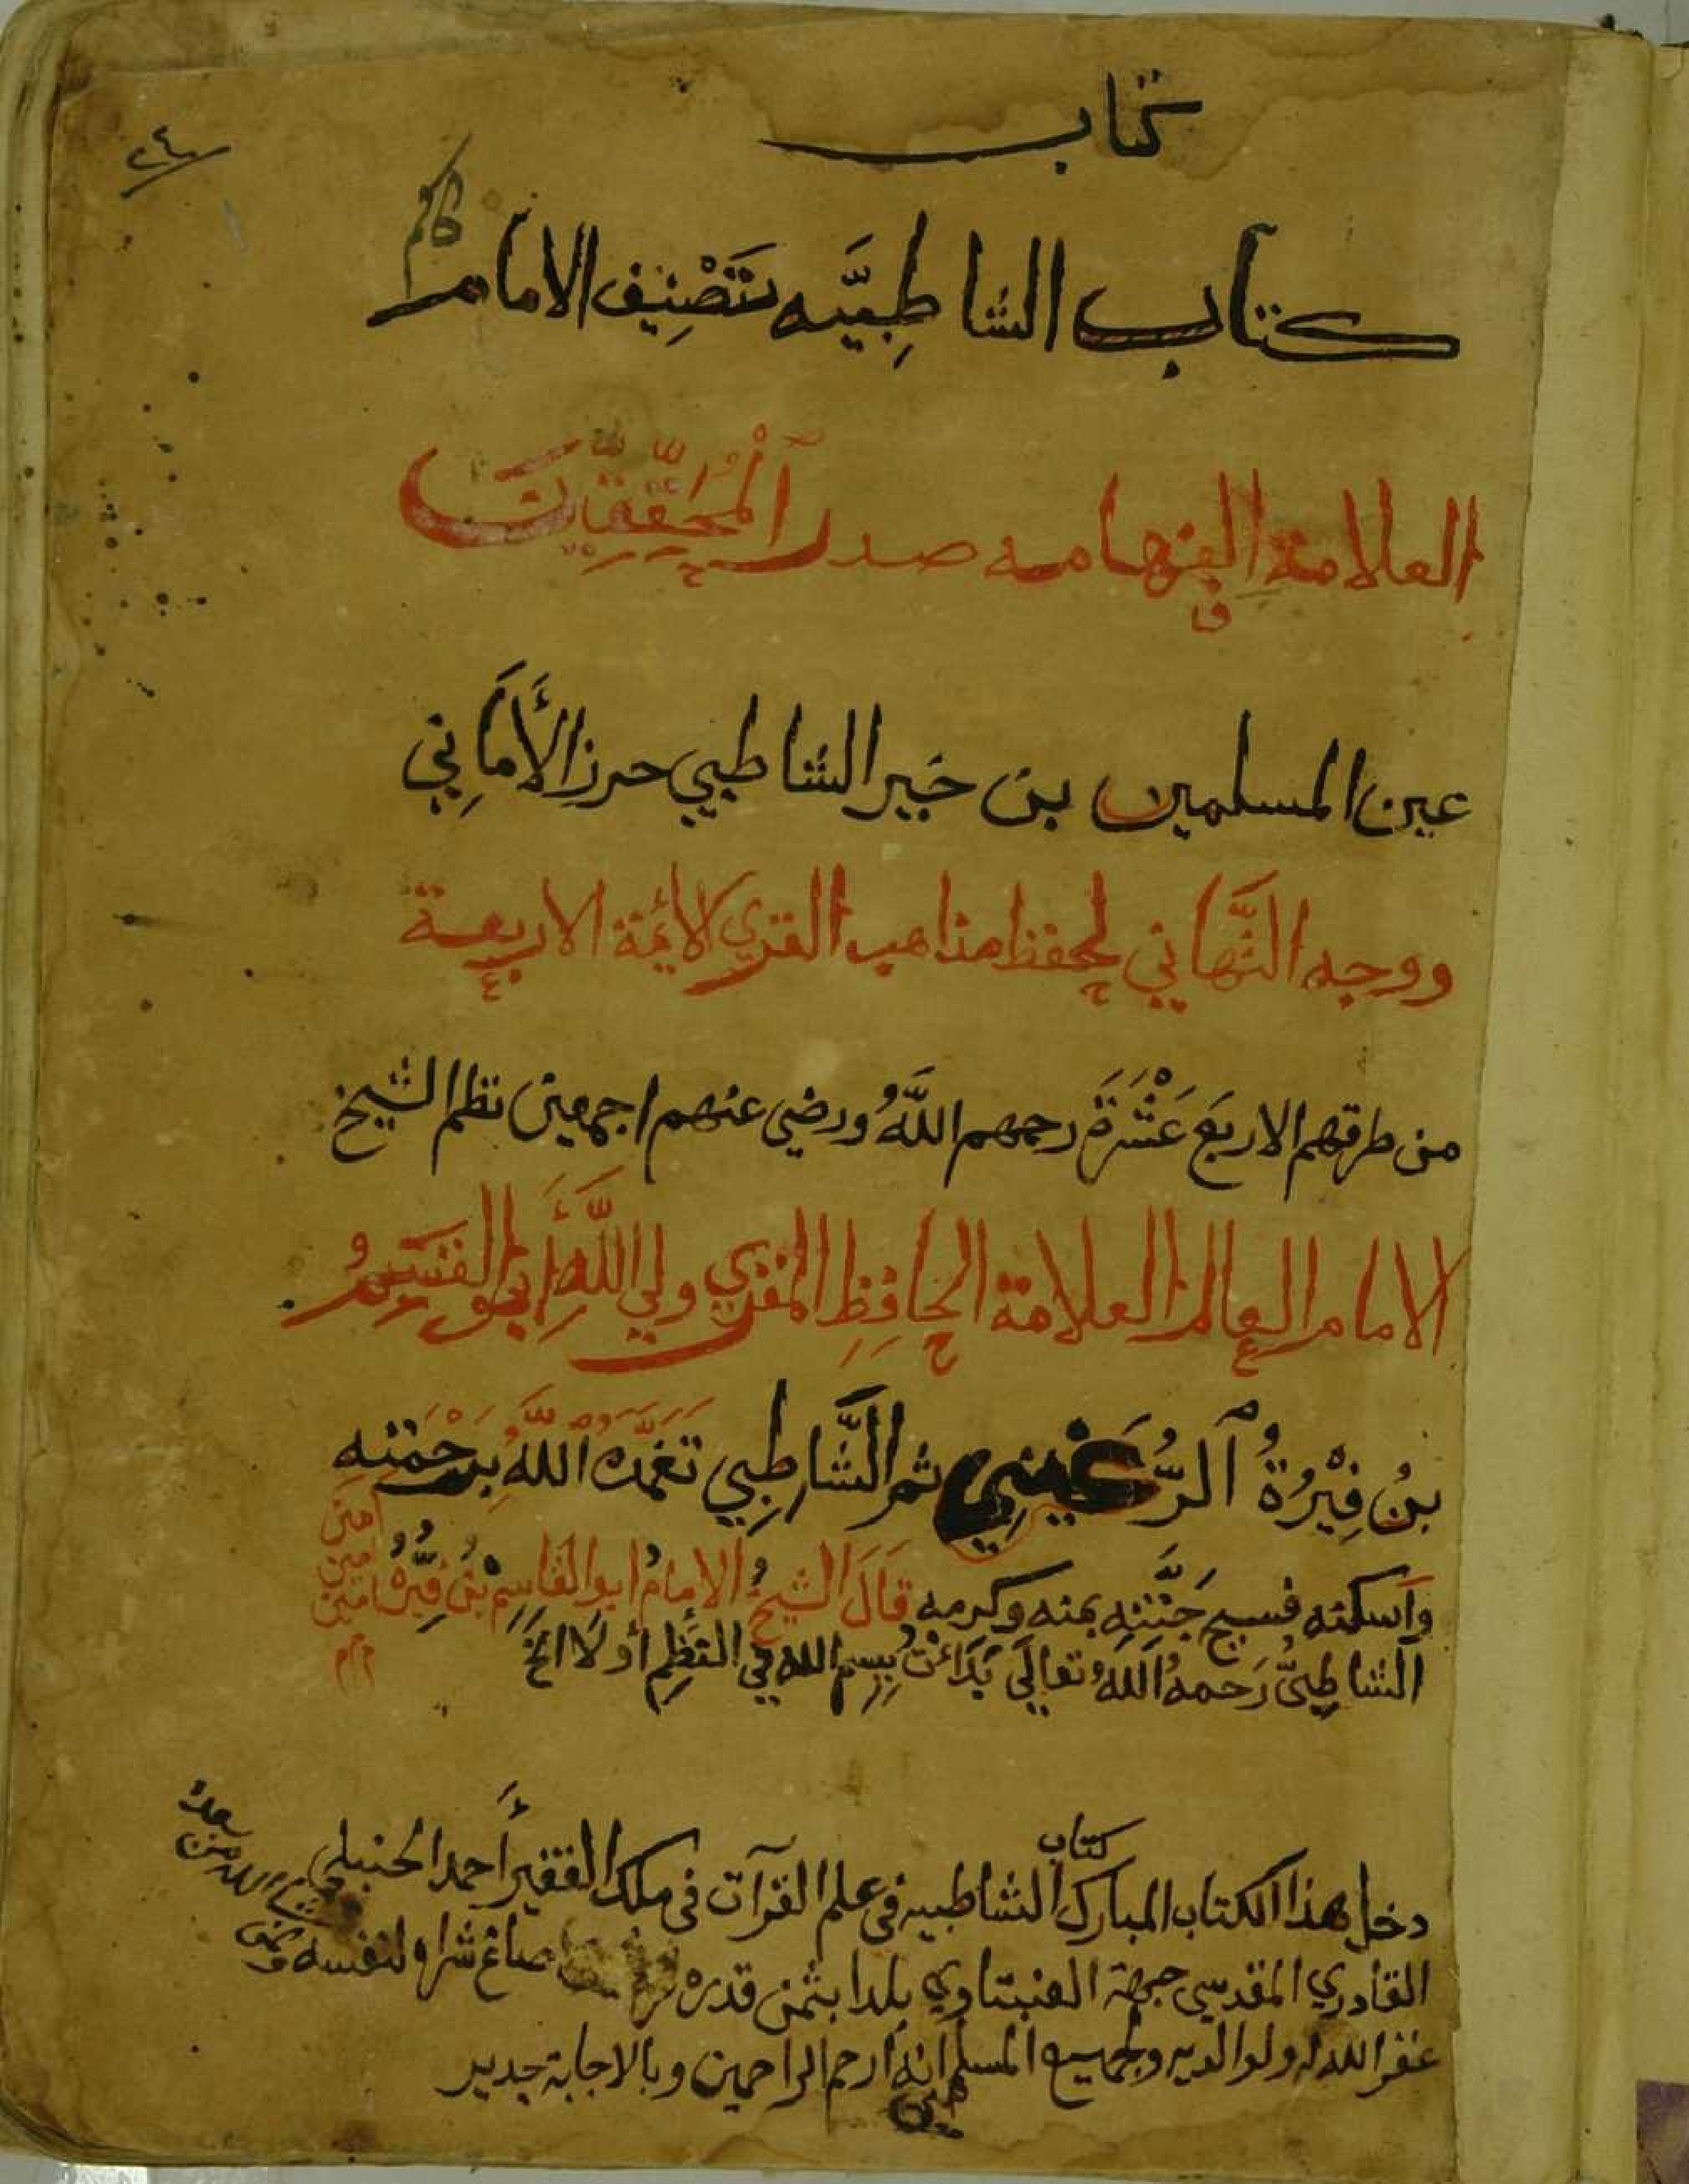 كتاب
٢٤
كتاب الشاطبيَّه تَصْنِيف الامام
العلامة الفهامه صدر الْمُحَقِّقِيْن
عين المسلمين بن خير الشاطبي حرز الأَمَاني
ووجه التَّهاني لحفظ مذاهب القرى لائمة الاربعة
من طرقهم الاربَع عَشْرَةَ رحمهم اللَّهُ ورضي عنهم اجمعين نظم الشيخ
الامام العالم العلامة الحافِظِ المقري ولي اللَّهِ أَبو القسم
بنُ فِيْرُةُ الرُّعَيني ثم الشَّاطِبي تَغَمَّدَهُ اللَّهُ بِرَحْمَتِه
امين
وَاَسكنه فسيح جَنَّتِهِ بمنه وكرمه قَالَ الشيخُ الامامُ ابو القَاسِمْ بْنُ فِيرُّهْ امين امين
الشاطِبيُّ رَحمهُ اللَّهُ تعالَى بَدَأتُ بِبِسمِ الله في النَّظمِ أولَا الخ
م م
كتاب
دخل هذا الكتاب المبارك الشاطبيه فى علم القرآت فى ملك الفقير أحمد الحنبلي
القادري المقدسي جهة بلدا بثمن قدره صاغ شراه لنفسه
غفر الله له ولوالديه ولجميع المسلمين انه أرحم الراحمين وبالاجابة جدير